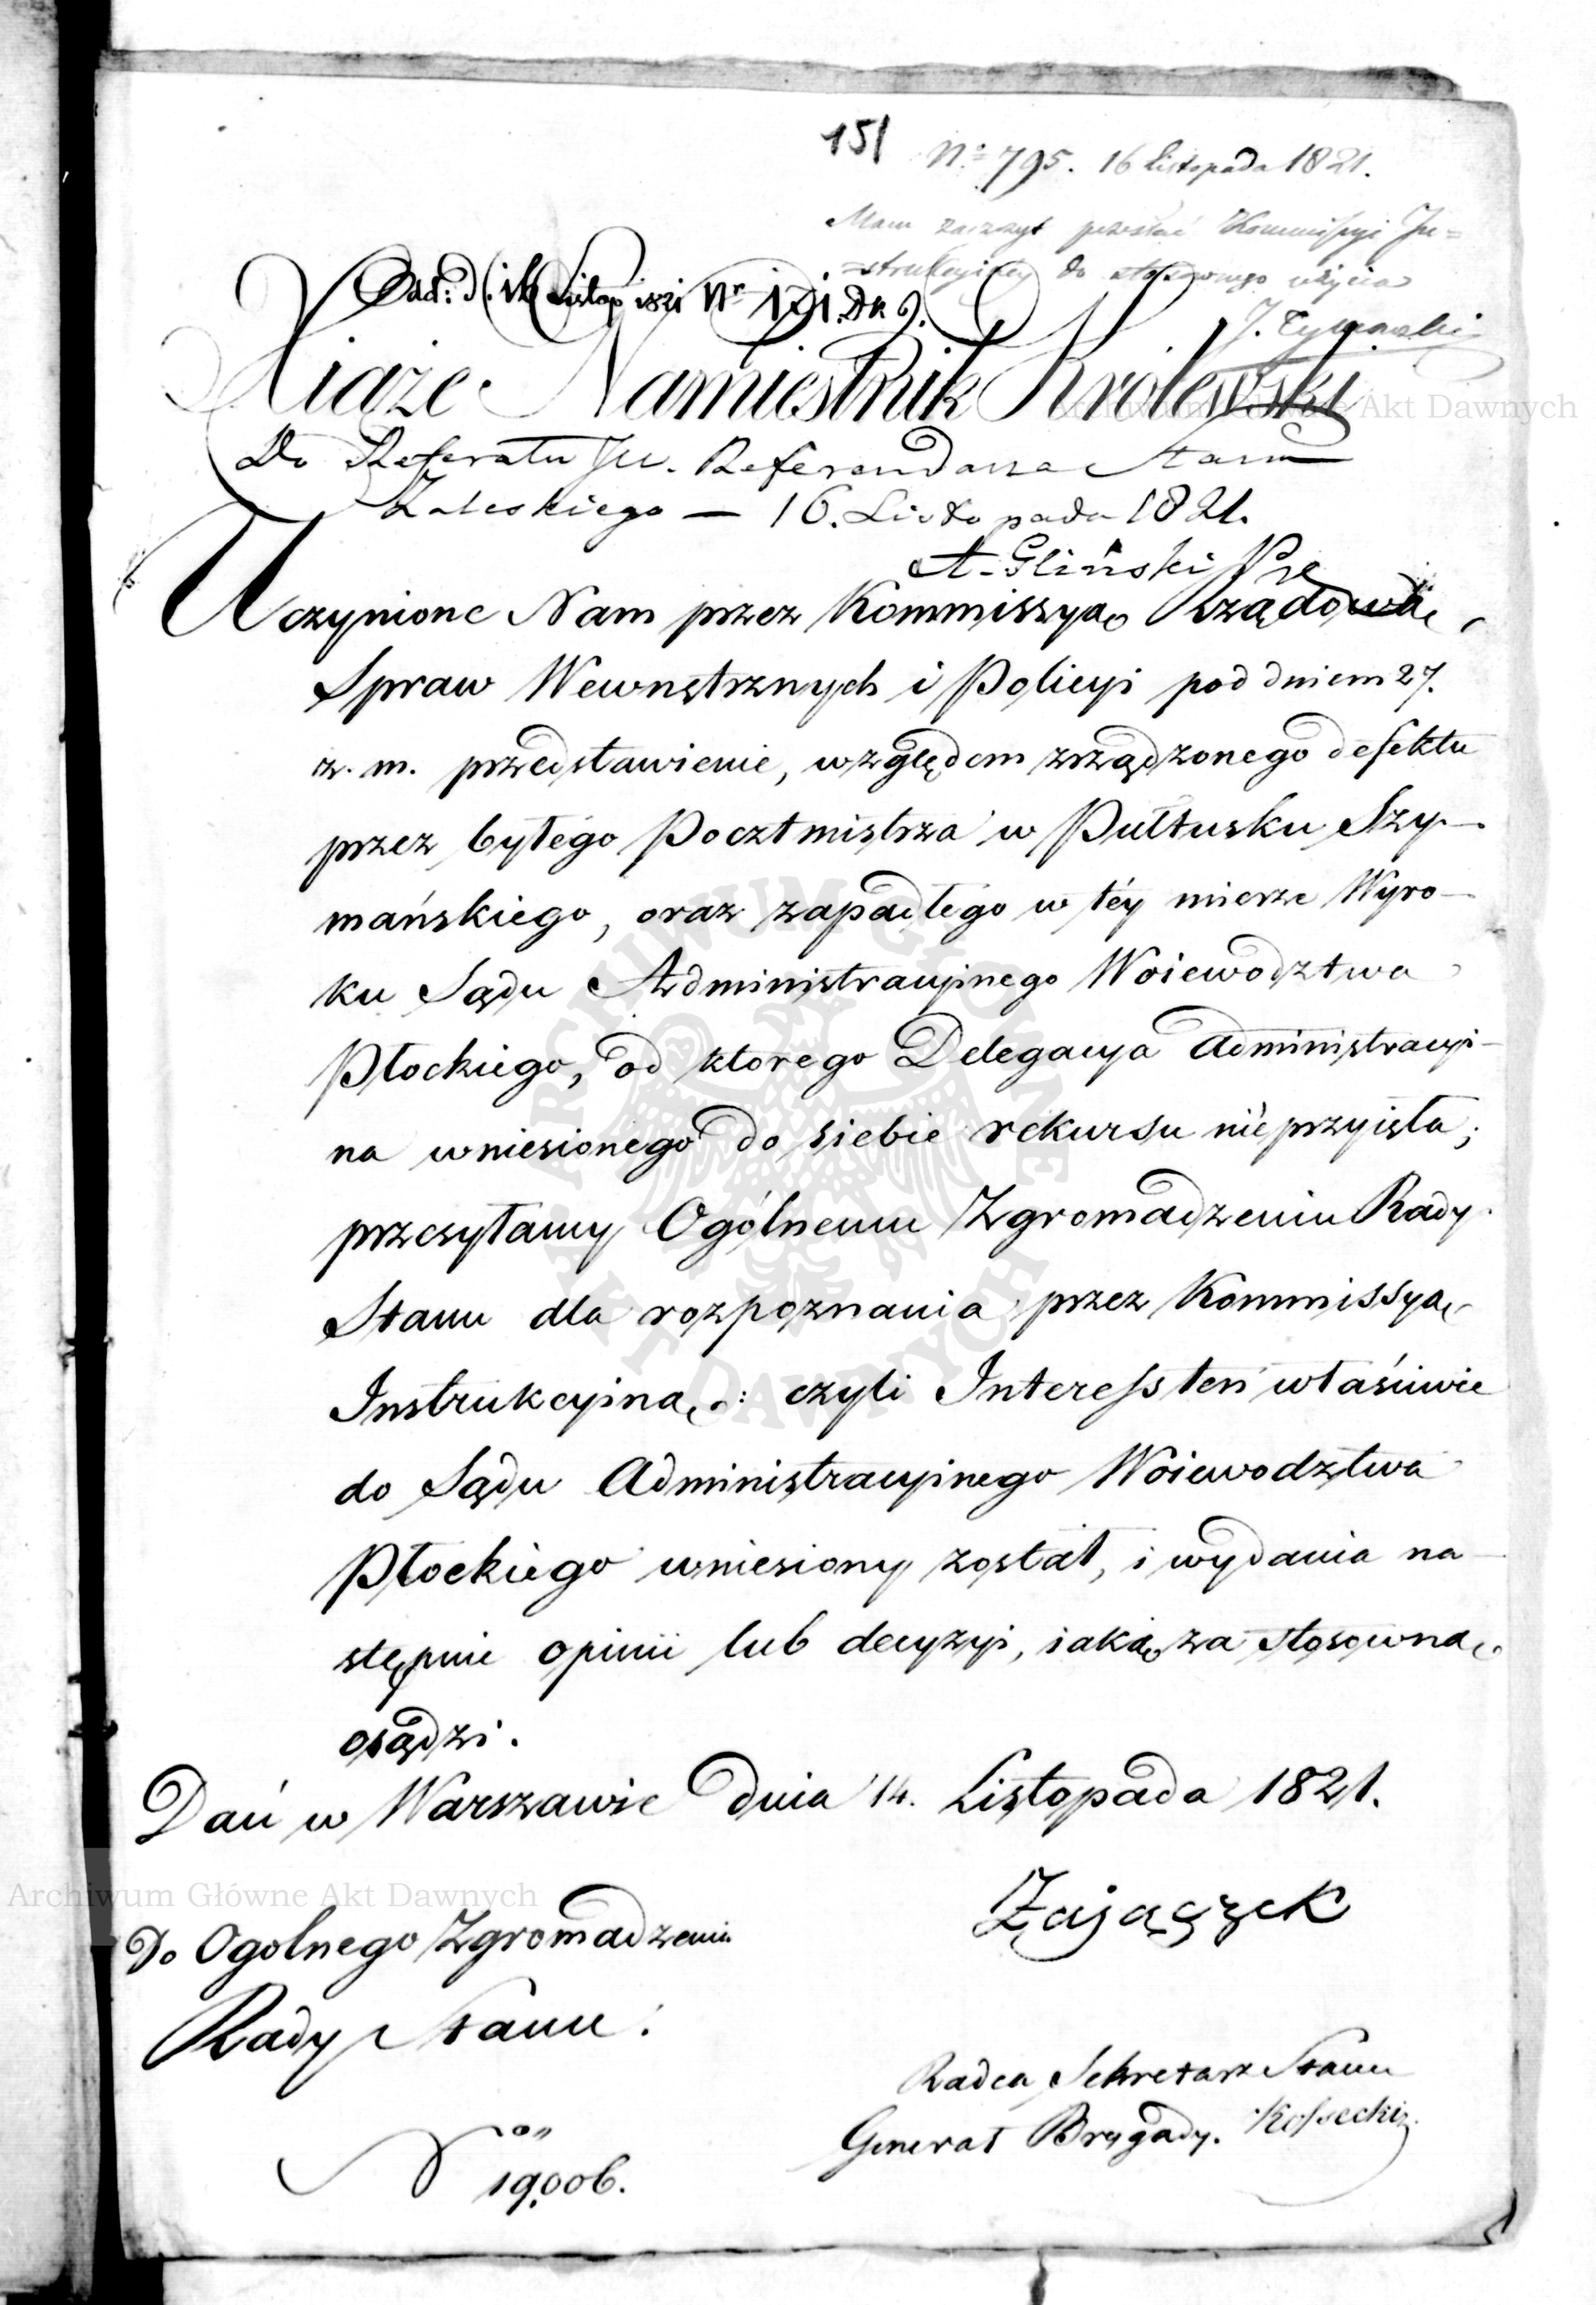 151
No 795. 16 Listopada 1821.
Mam zaszczyt przesłać Kommissyi In=
=strukcyiney do stosownego użycia
J. Tymowski
Odd: d. 16 Listop 1821 Nr 151. Dn 9.
Xiąże Namiestnik Królewski
Do Referatu JW. Referendarza Stanu
Zaleskiego — 16. Listopada 1821.
A. Gliński
Uczynione Nam przez Kommissyą Rządową
Spraw Wewnętrznych i Policyi pod dniem 27.
z. m. przedstawienie, względem zrządzonego defektu
przez byłego Pocztmistrza w Pułtusku Szy-
mańskiego, oraz zapadłego w téy mierze Wyro-
ku Sądu Administracyinego Woiewodztwa
Płockiego, od ktorego Delegacya Administracyi-
na wniesionego do siebie rekursu nieprzyięła;
przesyłamy Ogólnemu Zgromadzeniu Rady
Stanu dla rozpoznania przez Kommissyą
Instrukcyiną: czyli Interess ten właściwie
do Sądu Administracyinego Woiewodztwa
Płockiego wniesiony został, i wydania na-
stępnie opinii lub decyzyi, iaką za stosowną
osądzi.
Dań w Warszawie dnia 14. Listopada 1821.
Zajączek
Do Ogolnego Zgromadzenia
Rady Stanu.
Radca Sekretarz Stanu
Generał Brygady. Kossecki
No 19006.
Archiwum Główne Akt Dawnych
Archiwum Główne Akt Dawnych
ARCHIWUM GŁÓWNE AKT DAWNYCH